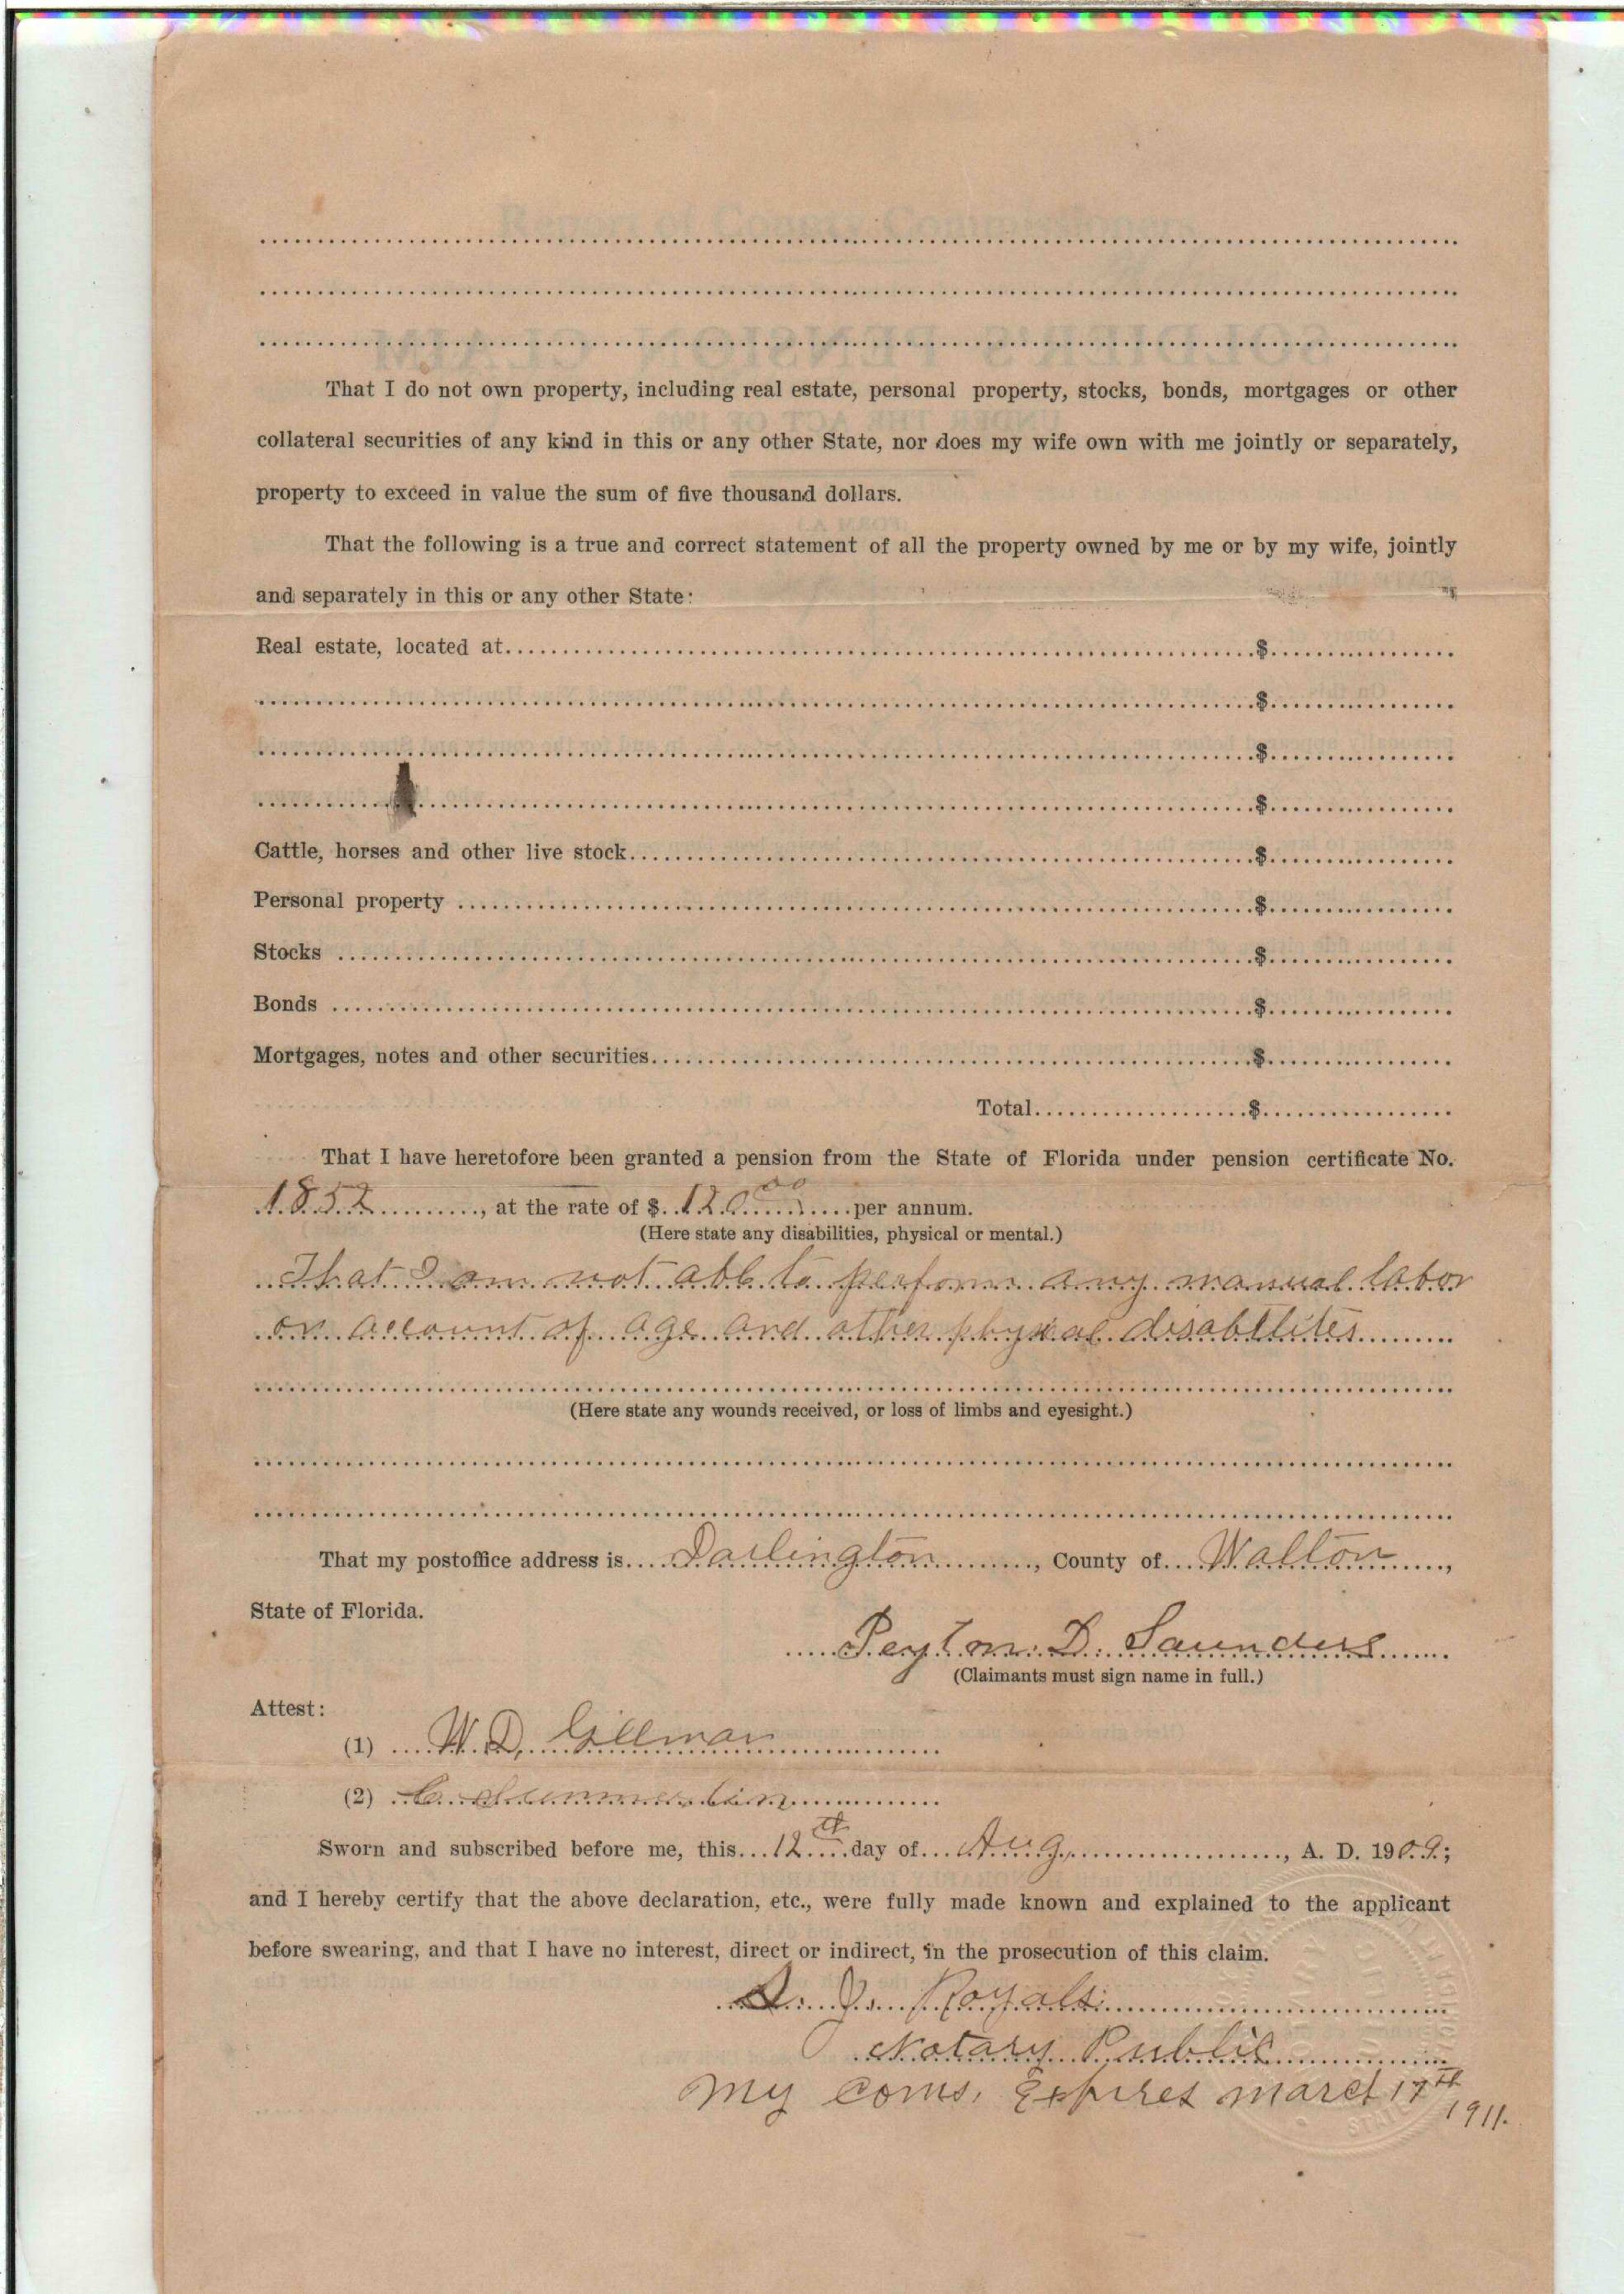 That I do not own property, including real estate, personal property, stocks, bonds, mortgages or other
collateral securities of any kind in this or any other State, nor does my wife own with me jointly or separately,
property to exceed in value the sum of five thousand dollars.
That the following is a true and correct statement of all the property owned by me or by my wife, jointly
and separately in this or any other State:
Real estate, located at.......... $..........
.......... $..........
.......... $..........
.......... $..........
Cattle, horses and other live stock.......... $..........
Personal property .......... $..........
Stocks .......... $..........
Bonds .......... $..........
Mortgages, notes and other securities.......... $..........
Total.......... $..........
That I have heretofore been granted a pension from the State of Florida under pension certificate No.
1852, at the rate of $ 120.00 per annum.
(Here state any disabilities, physical or mental.)
That I am not abl to perform any manual labor
on account of age and other physical disabilites
(Here state any wounds received, or loss of limbs and eyesight.)
That my postoffice address is Darlington, County of Walton,
State of Florida.
Peyton D. Saunders
(Claimants must sign name in full.)
Attest:
(1) W. D. Gillman
(2)
Sworn and subscribed before me, this 12th day of Aug, A. D. 1909;
and I hereby certify that the above declaration, etc., were fully made known and explained to the applicant
before swearing, and that I have no interest, direct or indirect, in the prosecution of this claim.
Royals
Notary Public
My coms. Expires march 17th
1911.